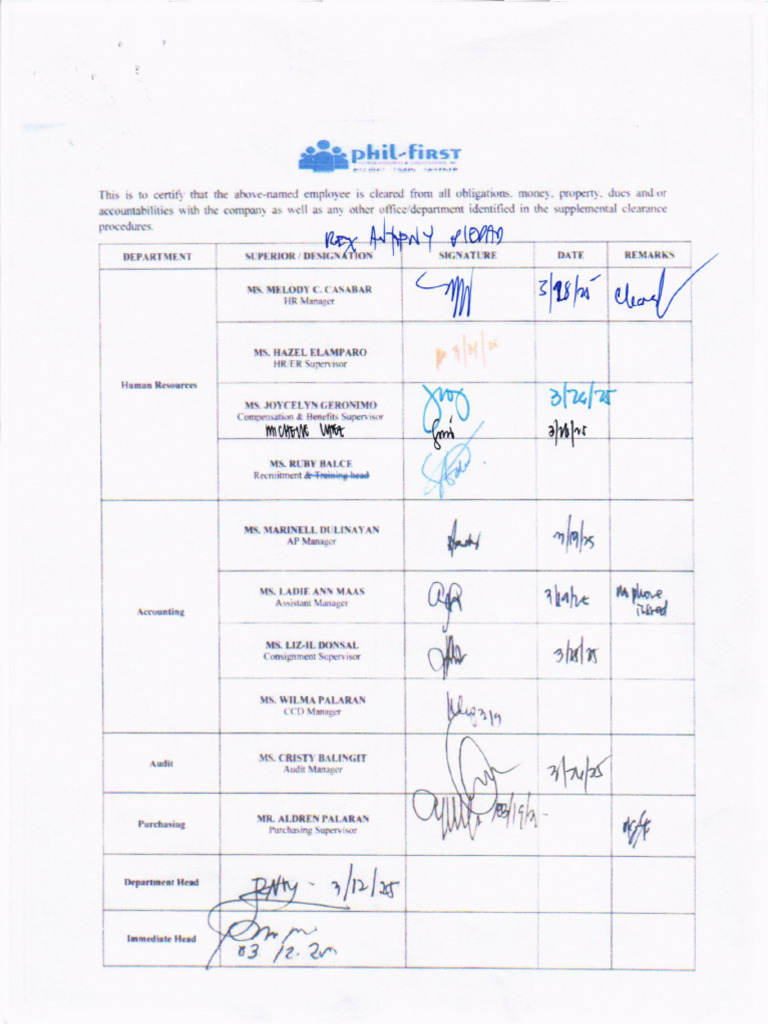 phil-first
This is to certify that the above-named employee is cleared from all obligations, money, property, dues and/or
accountabilities with the company as well as any other office/department identified in the supplemental clearance
procedures.
REX ANTHONY PIEDAD
DEPARTMENT SUPERIOR / DESIGNATION SIGNATURE DATE REMARKS
MS. MELODY C. CASABAR
HR Manager
3/28/25
Cleared
MS. HAZEL ELAMPARO
HR/ER Supervisor
Human Resources
MS. JOYCELYN GERONIMO
Compensation & Benefits Supervisor
3/26/25
MICHELLE
3/28/25
MS. RUBY BALCE
Recruitment & Training head
MS. MARINELL DULINAYAN
AP Manager
3/19/25
Accounting
MS. LADIE ANN MAAS
Assistant Manager
3/19/25
no phone
issued
MS. LIZ-IL DONSAL
Consignment Supervisor
3/25/25
MS. WILMA PALARAN
CCD Manager
3/19
Audit
MS. CRISTY BALINGIT
Audit Manager
3/26/25
Purchasing
MR. ALDREN PALARAN
Purchasing Supervisor
03/19/25
Department Head
3/12/25
Immediate Head
03 12. 2025